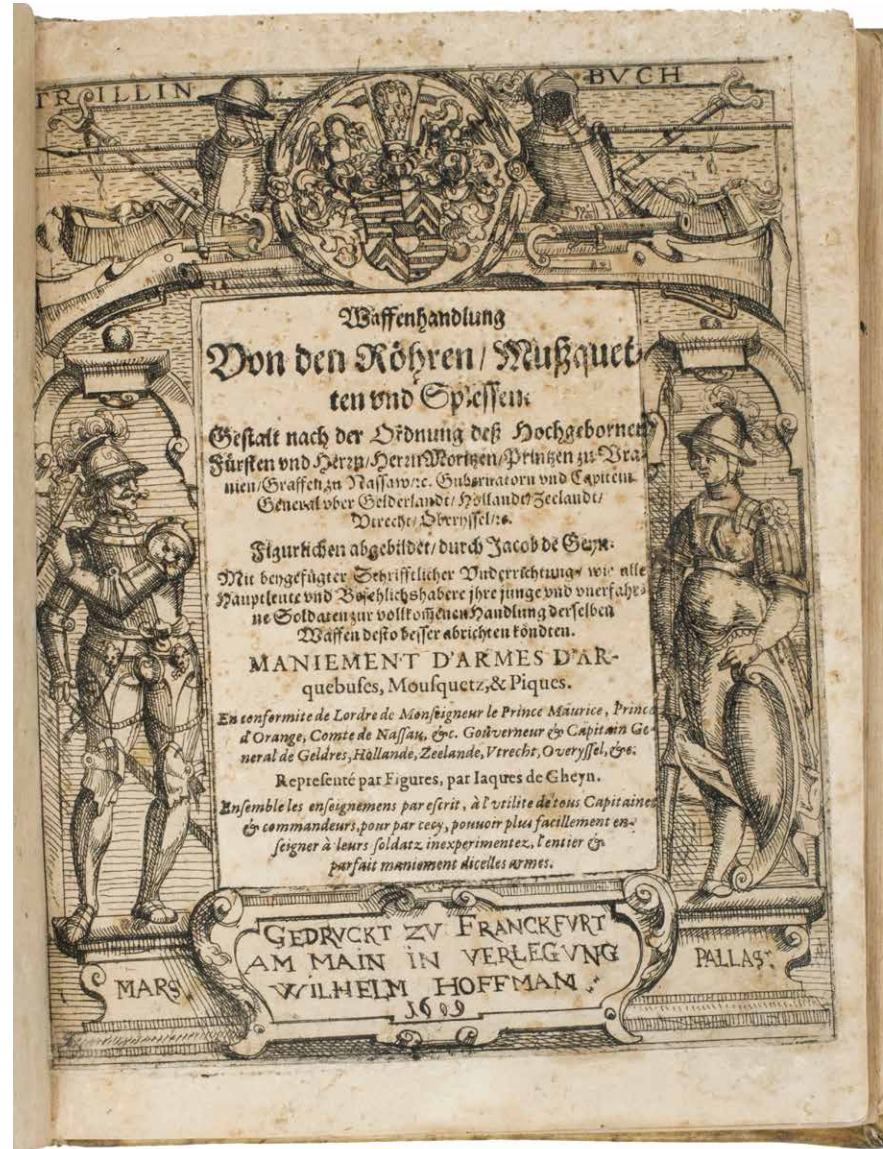 TRILLIN BVCH
Waffenhandlung
Von den Röhren/ Mußquet-
ten vnd Spiessen.
Gestalt nach der Ordnung deß Hochgebornen
Fürsten vnd Herrn/ Herrn Moritzen/ Printzen zu Vra-
nien/ Graffen zu Nassaw/ ꝛc. Gubernatorn vnd Capitein
General vber Gelderlandt/ Hollandt/ Zeelandt/
Vtrecht/ Oberyssel/ ꝛc.
Figurlichen abgebildet/ durch Jacob de Geyn.
Mit beygefügter Schrifftlicher Vnderrichtung/ wie alle
Hauptleute vnd Befehlichshabere jhre junge vnd vnerfahr-
ne Soldaten zur vollkom̃enen Handlung derselben
Waffen desto besser abrichten köndten.
MANIEMENT D'ARMES D'AR-
quebuſes, Mouſquetz, & Piques.
En conformite de Lordre de Monſeigneur le Prince Maurice, Prince
d'Orange, Comte de Naſſau, &c. Goûverneur & Capitain Ge-
neral de Geldres, Hollande, Zeelande, Vtrecht, Overyſſel, &c.
Repreſenté par Figures, par Iaques de Gheyn.
Enſemble les enſeignemens par eſcrit, à l'vtilite de tous Capitaines
& commandeurs, pour par cecy, pouuoir plus facillement en-
ſeigner à leurs ſoldatz inexperimentez, l'entier &
parfait maniement dicelles armes.
GEDRVCKT ZV FRANCKFVRT
AM MAIN IN VERLEGVNG
WILHELM HOFFMAN
1609
MARS.
PALLAS.